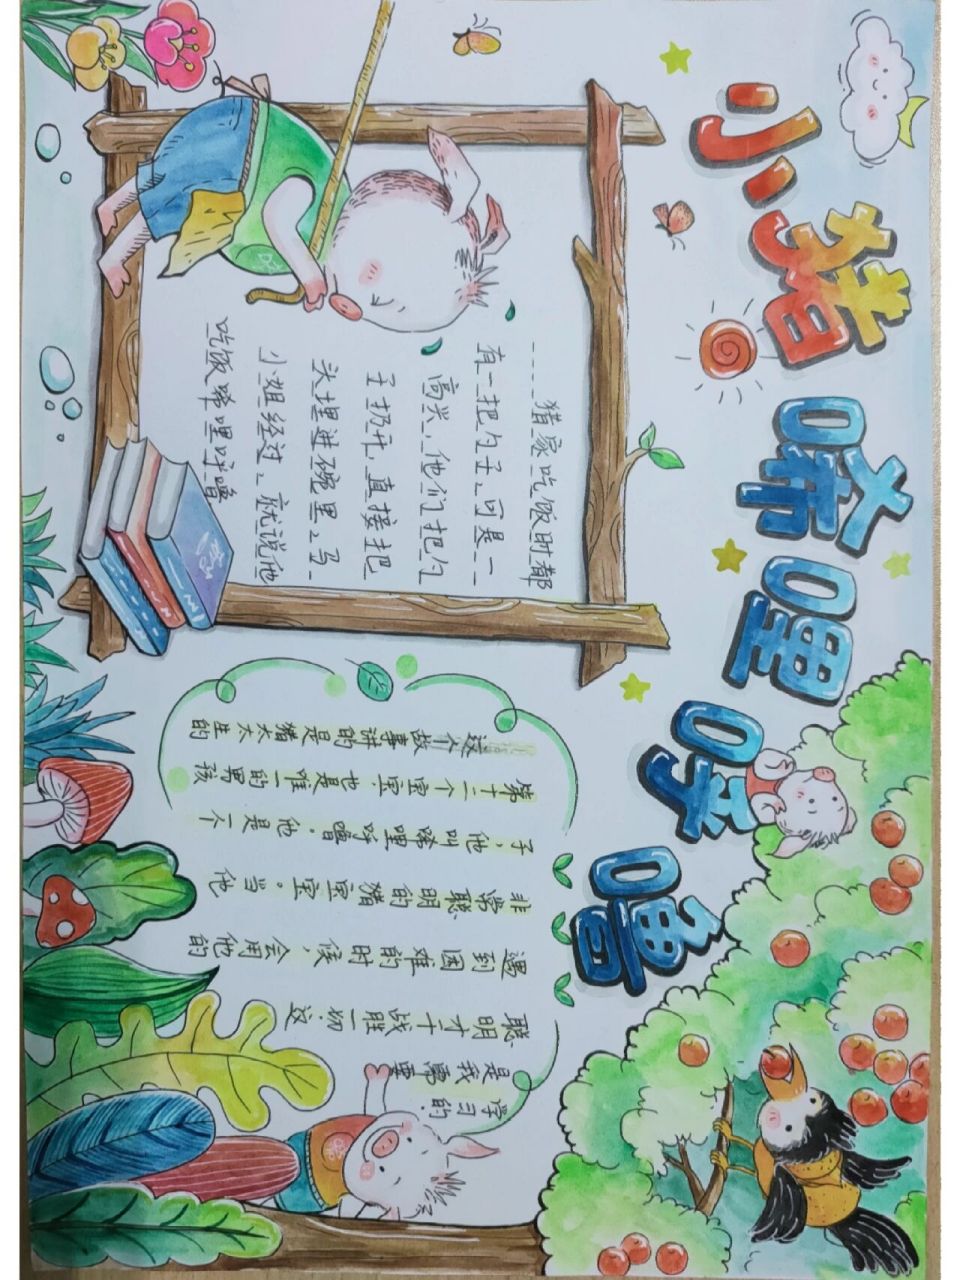 小猪唏哩呼噜
猪家吃饭时都
有一把勺子,可是一
高兴,他们把勺
子扔开,直接把
头埋进碗里。马
小姐经过,就说他
吃饭唏哩呼噜
这个故事讲的是猪太太生的
第十二个宝宝.也是唯一的男孩
子,他叫唏哩呼噜.他是一个
非常聪明的猪宝宝。当他
遇到困难的时候,会用他的
聪明才干战胜一切.这
是我需要
学习的.